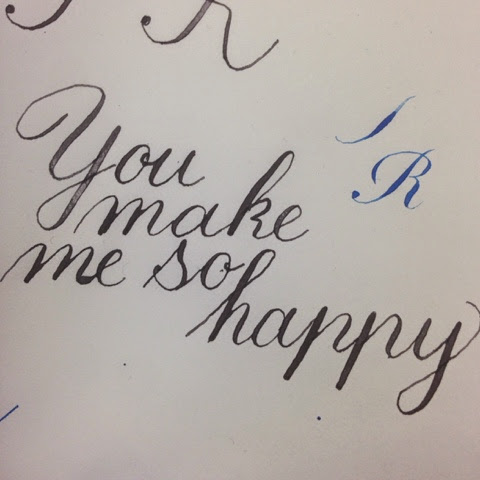 R
You
make
me so
happy
R